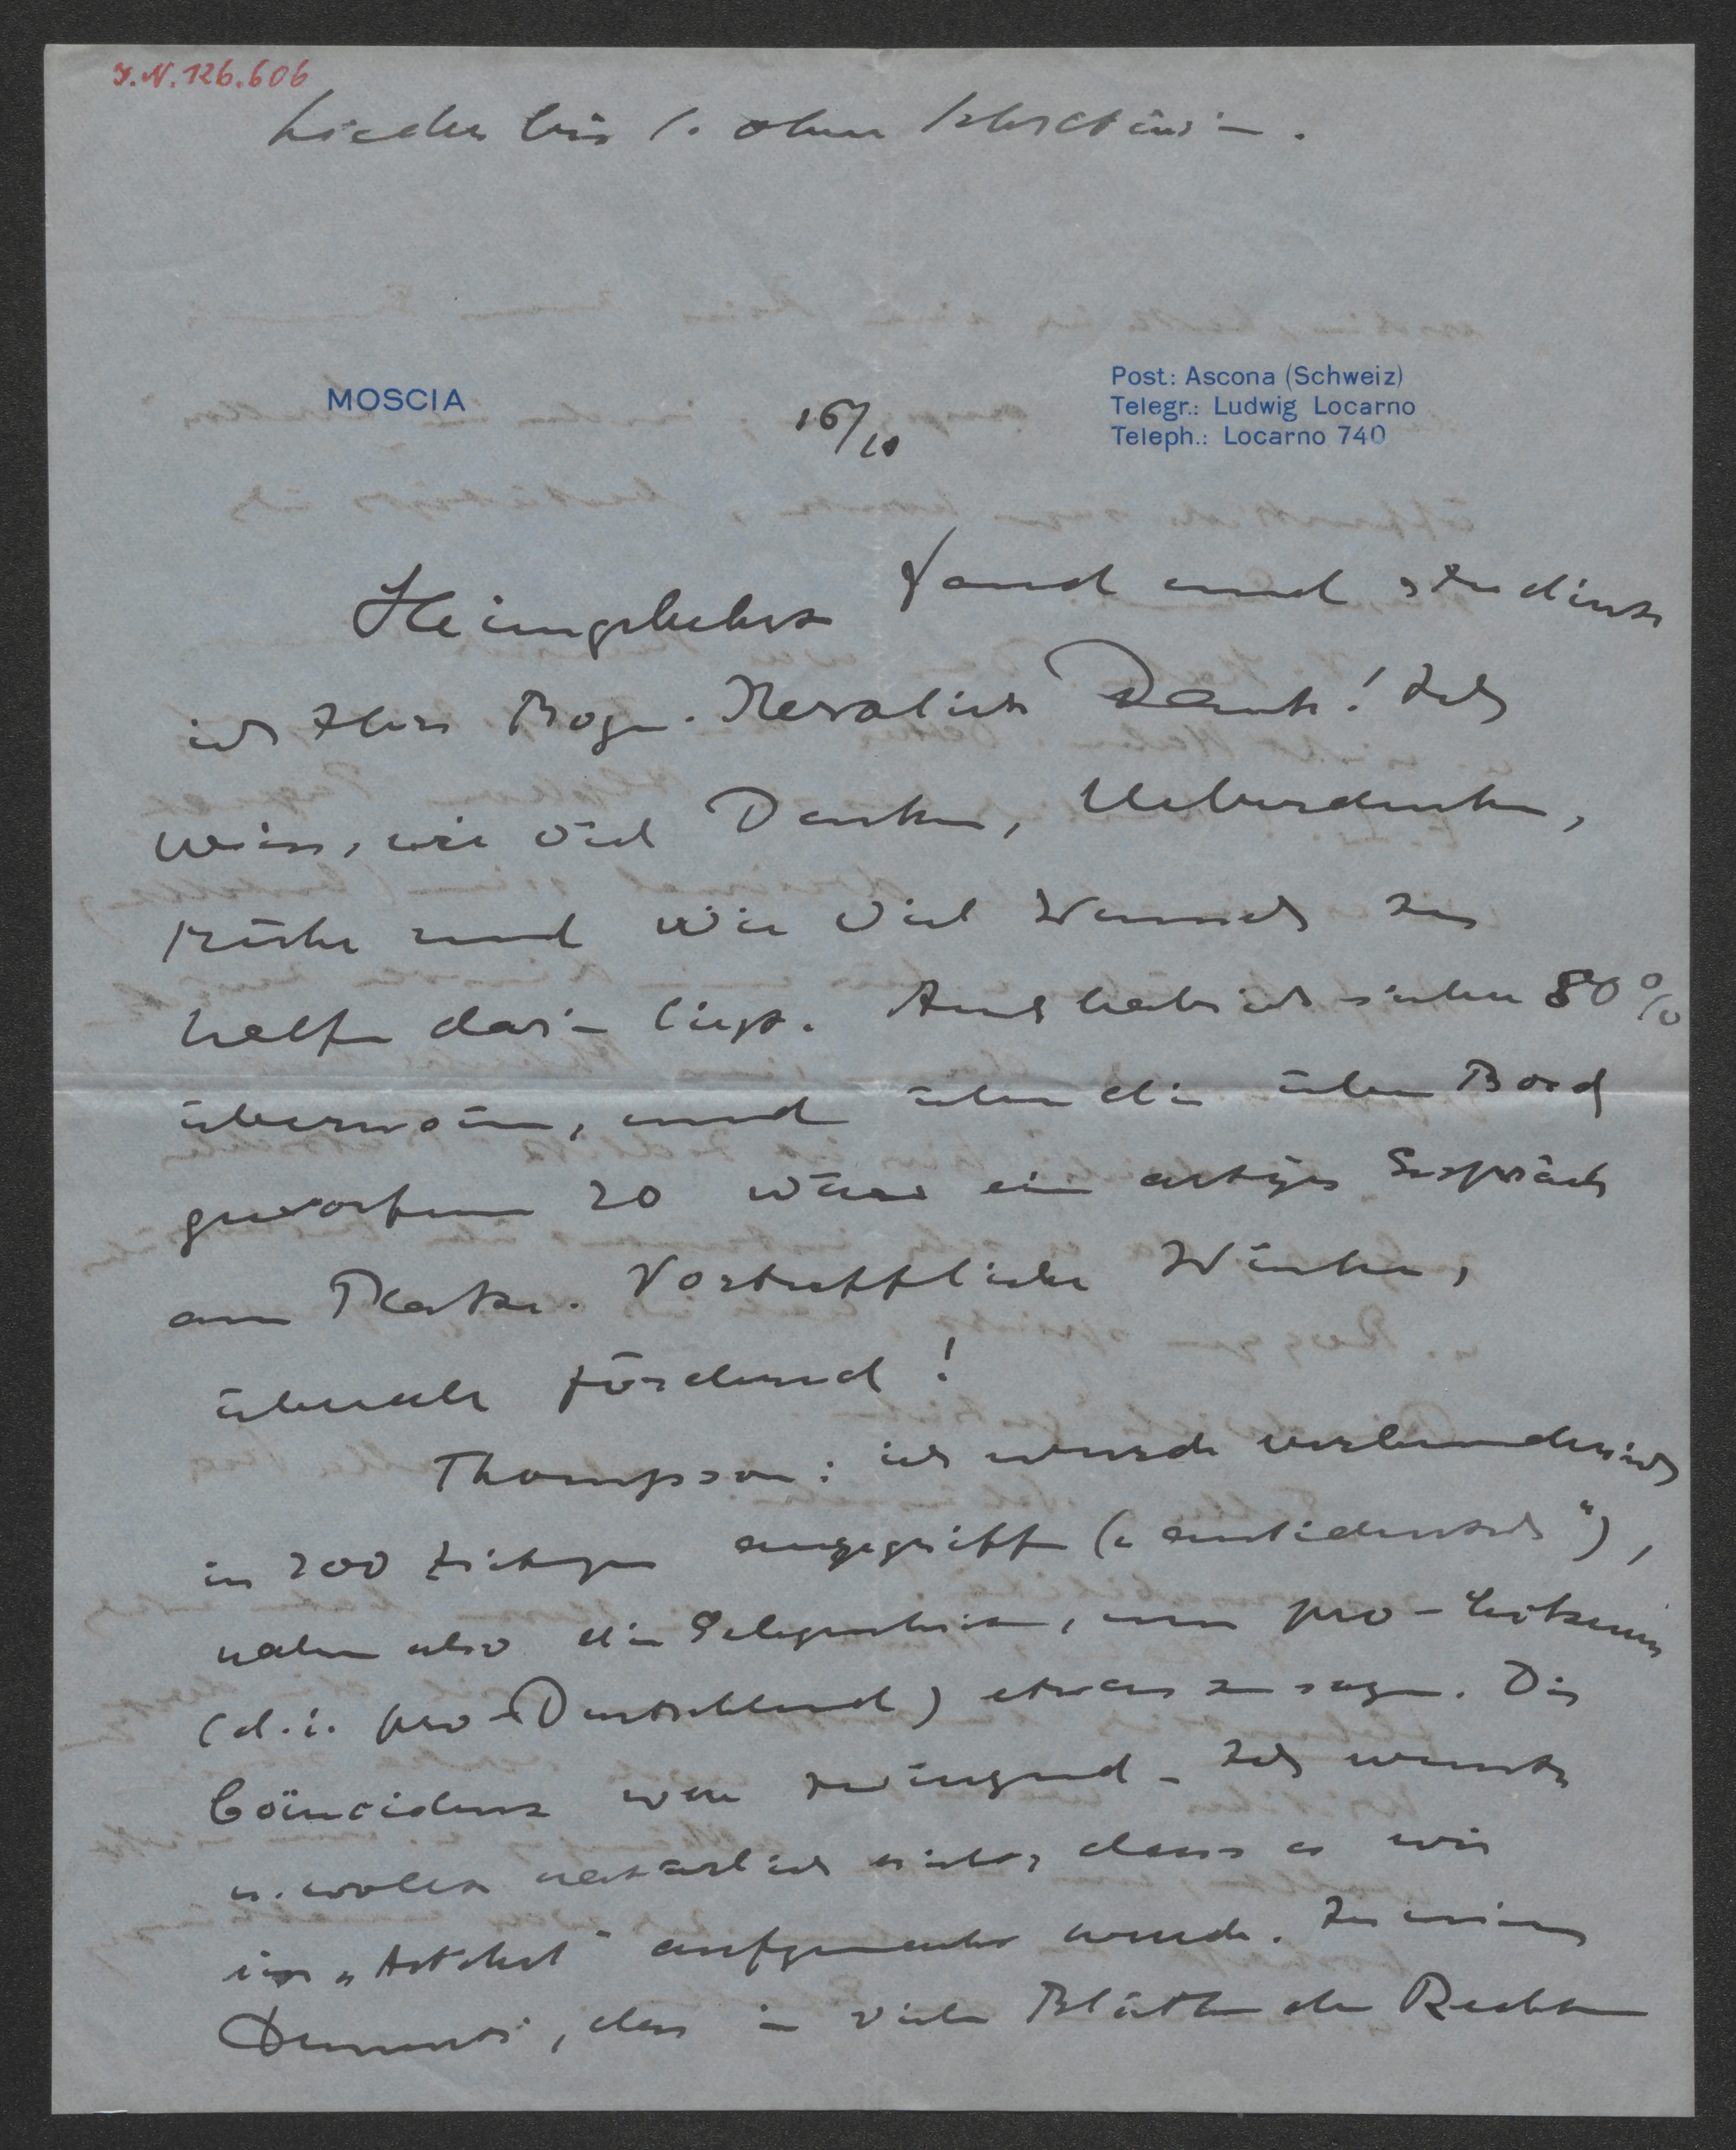 I.N. 126.606
Leider bin ich ohne Sekretärin.
MOSCIA
16/10
Post: Ascona (Schweiz)
Telegr.: Ludwig Locarno
Teleph.: Locarno 740
Heimgekehrt fand und studierte
ich Ihre Bogen. Herzlichen Dank! Ich
weiss, wie viel Denken, Ueberdenken,
Mühe und wie viel Wunsch zu
helfen darin liegt. Auch habe ich sicher 80%
übernommen, und über die über Bord
geworfenen 20 wäre ein artiges Gespräch
am Platze. Vortreffliche Winke,
überall fördernd!
Thompson: ich wurde
in 200 Zeitungen angegriffen („antideutsch"),
nahm also die Gelegenheit, um pro-
(d.i. pro-Deutschland) etwas zu sagen. Die
Coïncidenz war zwingend. Ich wusste
u. wollte natürlich nicht, dass es wie
ein „Artikel" aufgemacht wurde. In meinem
Dementi, das in viele Blätter der Rechten